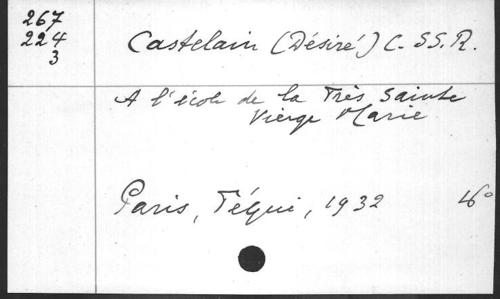 267
224
3
Castelain (Désiré) C. SS. R.
A l'école de la Très Sainte
Vierge Marie
Paris, Téqui, 1932 16°